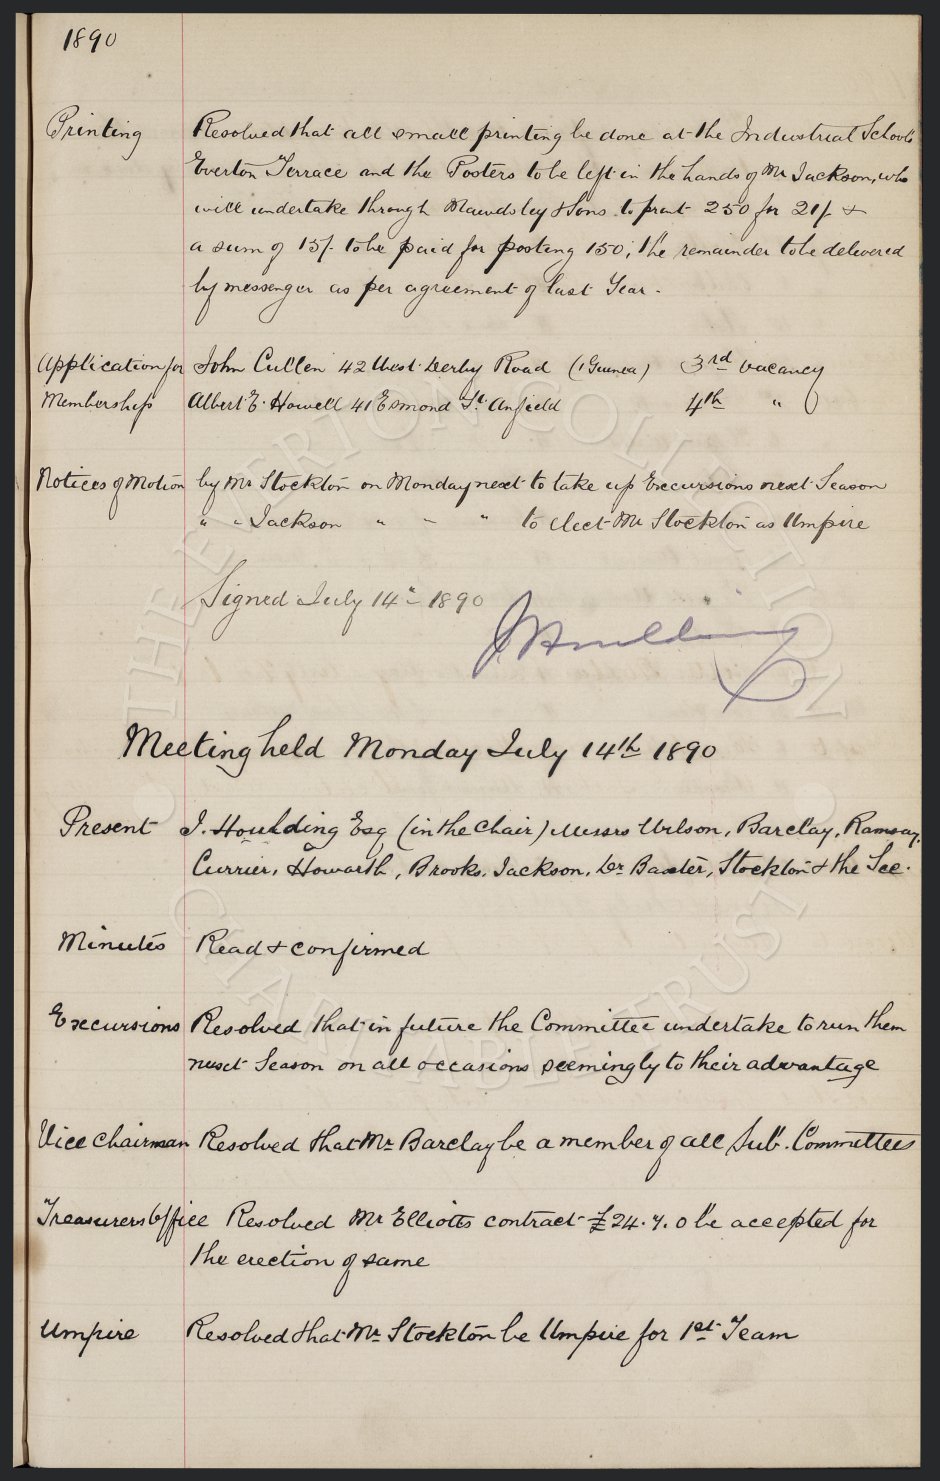 1890
Printing Resolved that all small printing be done at the Industrial Schools
Everton Terrace and the Posters to be left in the hands of Mr Jackson, who
will undertake through Mawdsley & Sons to print 250 for 21/- &
a sum of 15/- to be paid for posting 150; the remainder to be delivered
by messenger as per agreement of last Year.
Application for John Cullen 42 West Derby Road (1 Guinea) 3rd vacancy
Membership Albert E. Howell 41 Esmond St. Anfield 4th "
Notices of Motion by Mr Stockton on Monday next to take up Excursions next Season
" " Jackson " " " to elect Mr Stockton as Umpire
Signed July 14" 1890
J Houlding
Meeting held Monday July 14th 1890
Present J. Houlding Esq (in the Chair) Messrs Wilson, Barclay, Ramsay,
Currier, Howarth, Brooks, Jackson, Dr Baxter, Stockton & the Sec.
Minutes Read & confirmed
Excursions Resolved that in future the Committee undertake to run them
next Season on all occasions seemingly to their advantage
Vice Chairman Resolved that Mr Barclay be a member of all Sub. Committees
Treasurers Office Resolved Mr Elliotts contract £24.7.0 be accepted for
the erection of same
Umpire Resolved that Mr Stockton be Umpire for 1st Team
THE EVERTON COLLECTION
CHARITABLE TRUST